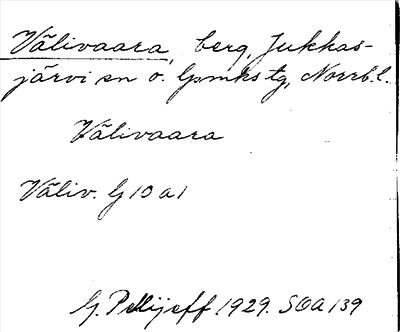 Välivaara, berg, Jukkas-
järvi sn o. lpmks tg, Norrb. l.
Välivaara
Väliv. G 10 a 1
G. Pellijeff 1929. SOA 139